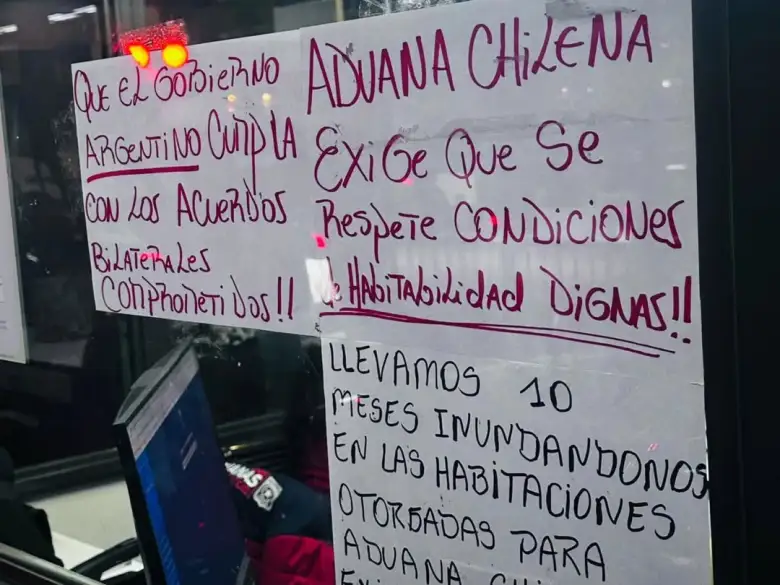 QUE EL GOBIERNO
ARGENTINO CUMPLA
CON LOS ACUERDOS
BILATERALES
COMPROMETIDOS!!
ADUANA CHILENA
EXIGE QUE SE
RESPETE CONDICIONES
de HABITABILIDAD DIGNAS!!
LLEVAMOS 10
MESES INUNDANDONOS
EN LAS HABITACIONES
OTORGADAS PARA
ADUANA